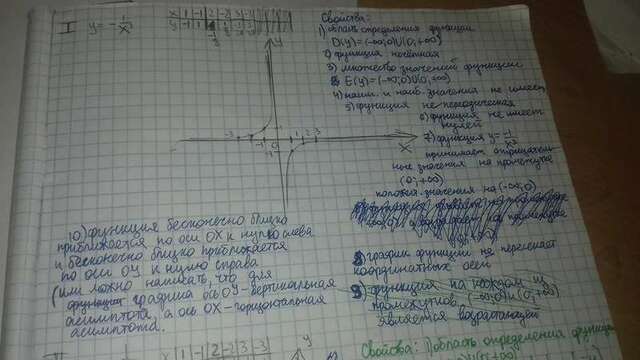 I y = -1/x³
x 1 -1 2 -2 3 -3
y
x
-3 -1 0 1 2 3
Свойства:
1) область определения функции
D(y)=(-∞;0)U(0;+∞)
2) функция нечётная
3) множество значений функции
E(y)=(-∞;0)U(0;+∞)
4) наим. и наиб. значения не имеет
5) функция не периодическая
6) функция не имеет
нулей
7) функция y = -1/x³
принимает отрицатель-
ные значения на промежутке
(0;+∞)
полож. значения на (-∞;0)
8) график функции не пересекает
координатных осей
9) функция на каждом из
промежутков, (-∞;0)U(0;+∞)
является возрастающей
10) функция бесконечно близко
приближается по оси ОХ к нулю слева
и бесконечно близко приближается
по оси ОУ к нулю справа
(или можно написать, что для
графика ось ОУ-вертикальная
асимптота, а ось ОХ-горизонтальная
асимптота.
II x 1 -1 2 -2 3 -3
y
Свойства: 1) область определения функции